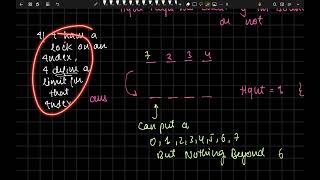 or not
4) I have a
lock on an
index,
& define a
limit for
that
index
7 2 3 4
ans
tight = 1 {
Can put a
0, 1, 2, 3, 4, 5, 6, 7
But Nothing Beyond 6